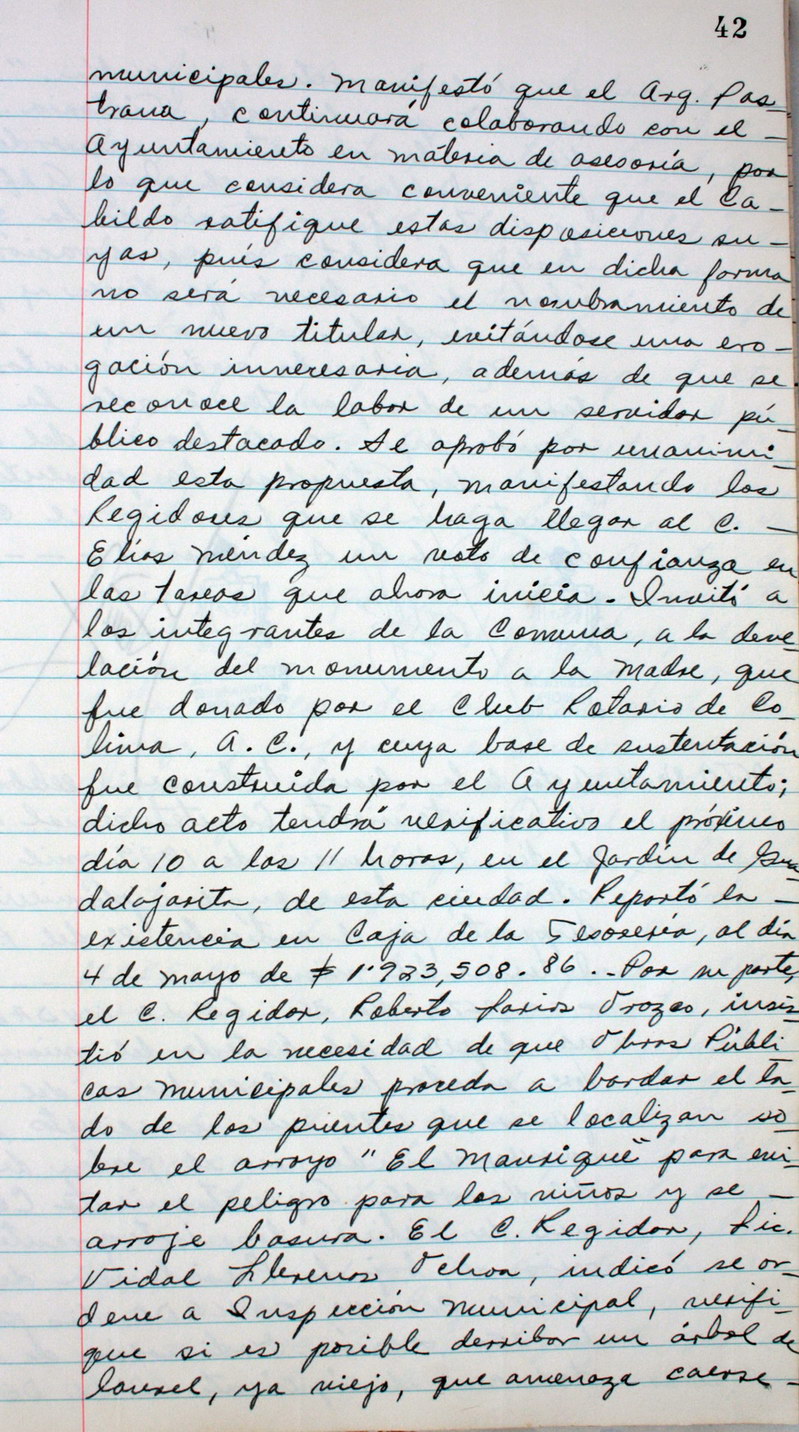 42
municipales. Manifestó que el Arq. Pas-
trana, continuará colaborando con el -
Ayuntamiento en máteria de asesoría, por
lo que considera conveniente que el Ca-
bildo ratifique estas disposiciones su-
yas, pués considera que en dicha forma
no será necesario el nombramiento de
un nuevo titular, evitándose una ero-
gación innecesaria, además de que se
reconoce la labor de un servidor pú-
blico destacado. Se aprobó por unanimi-
dad esta propuesta, manifestando los
Regidores que se haga llegar al C. -
Elías Méndez un voto de confianza en
las tareas que ahora inicia. Invitó a
los integrantes de la Comuna, a la deve-
lación del monumento a la Madre, que
fue donado por el Club Rotario de Co-
lima, A. C., y cuya base de sustentación
fue construída por el Ayuntamiento;
dicho acto tendrá verificativo el próximo
día 10 a las 11 horas, en el Jardín de Gua
dalajarita, de esta ciudad. Reportó la -
existencia en Caja de la Tesorería, al día
4 de mayo de $ 1'923,508.86.- Por su parte,
el C. Regidor, Roberto Farías Orozco, insis-
tió en la necesidad de que Obras Públi
cas Municipales proceda a bordar el la-
do de los puentes que se localizan so-
bre el arroyo "El Manrique" para evi-
tar el peligro para los niños y se -
arroje basura. El C. Regidor, Lic.
Vidal Llerenas Ochoa, indicó se or-
dene a Inspección Municipal, verifi-
que si es posible derribar un árbol de
laurel, ya viejo, que amenaza caerse -